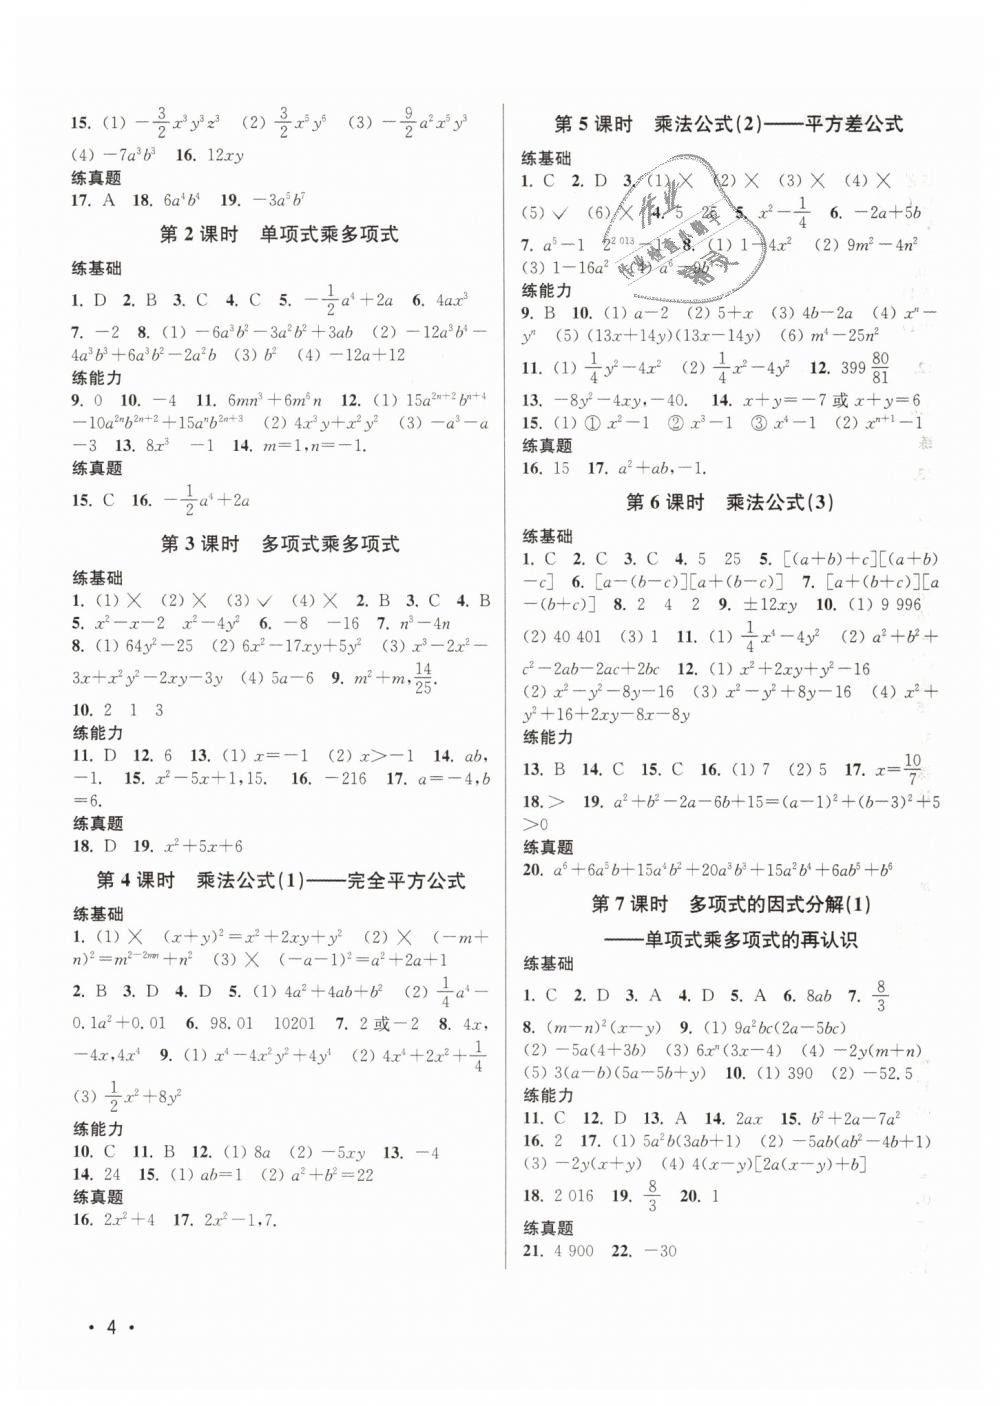 15. (1) −3/2x³y³z³ (2) 3/2x⁵y⁶ (3) −9/2a²x⁵y³
(4) −7a³b³ 16. 12xy
练真题
17. A 18. 6a⁴b⁴ 19. −3a⁵b⁷
第2课时 单项式乘多项式
练基础
1. D 2. B 3. C 4. C 5. −1/2a⁴+2a 6. 4ax³
7. −2 8. (1) −6a³b²−3a²b²+3ab (2) −12a³b⁴−
4a³b³+6a³b²−2a²b (3) b² (4) −12a+12
练能力
9. 0 10. −4 11. 6mn³+6m⁶n 12. (1) 15a²ⁿ⁺²bⁿ⁺⁴
−10a²ⁿb²ⁿ⁺²+15aⁿb²ⁿ⁺³ (2) 4x³y+x²y² (3) −a³−a
−3 13. 8x³ −1 14. m=1,n=−1.
练真题
15. C 16. −1/2a⁴+2a
第3课时 多项式乘多项式
练基础
1. (1) × (2) × (3) ✓ (4) × 2. B 3. C 4. B
5. x²−x−2 x²−4y² 6. −8 −16 7. n³−4n
8. (1) 64y²−25 (2) 6x²−17xy+5y² (3) x³−2x²−
3x+x²y²−2xy−3y (4) 5a−6 9. m²+m,14/25.
10. 2 1 3
练能力
11. D 12. 6 13. (1) x=−1 (2) x>−1 14. ab,
−1. 15. x²−5x+1,15. 16. −216 17. a=−4,b
=6.
练真题
18. D 19. x²+5x+6
第4课时 乘法公式(1)——完全平方公式
练基础
1. (1) × (x+y)²=x²+2xy+y² (2) × (−m+
n)²=m²⁻²ᵐⁿ+n² (3) × (−a−1)²=a²+2a+1
2. B 3. D 4. D 5. (1) 4a²+4ab+b² (2) 1/4a⁴−
0.1a²+0.01 6. 98.01 10201 7. 2或−2 8. 4x,
−4x,4x⁴ 9. (1) x⁴−4x²y²+4y⁴ (2) 4x⁴+2x²+1/4
(3) 1/2x²+8y²
练能力
10. C 11. B 12. (1) 8a (2) −5xy 13. −4
14. 24 15. (1) ab=1 (2) a²+b²=22
练真题
16. 2x²+4 17. 2x²−1,7.
第5课时 乘法公式(2)——平方差公式
练基础
1. C 2. D 3. (1) × (2) × (3) × (4) ×
(5) ✓ (6) × 4. 5 25 5. x²−1/4 6. −2a+5b
7. a⁵−1 2²⁰¹³−1 8. (1) 1−4x² (2) 9m²−4n²
(3) 1−16a² (4) a⁶−9b⁴
练能力
9. B 10. (1) a−2 (2) 5+x (3) 4b−2a (4) xⁿ−
yⁿ (5) (13x+14y)(13x−14y) (6) m⁴−25n²
11. (1) 1/4y²−4x² (2) 1/4x²−4y² 12. 399 80/81
13. −8y²−4xy,−40. 14. x+y=−7或x+y=6
15. (1) ① x²−1 ② x³−1 ③ x⁴−1 (2) xⁿ⁺¹−1
练真题
16. 15 17. a²+ab,−1.
第6课时 乘法公式(3)
练基础
1. C 2. C 3. C 4. 5 25 5. [(a+b)+c][(a+b)
−c] 6. [a−(b−c)][a+(b−c)] 7. [a+(b+c)][a
−(b+c)] 8. 2 4 2 9. ±12xy 10. (1) 9 996
(2) 40 401 (3) 1 11. (1) 1/4x⁴−4y² (2) a²+b²+
c²−2ab−2ac+2bc 12. (1) x²+2xy+y²−16
(2) x²−y²−8y−16 (3) x²−y²+8y−16 (4) x²+
y²+16+2xy−8x−8y
练能力
13. B 14. C 15. C 16. (1) 7 (2) 5 17. x=10/7
18. > 19. a²+b²−2a−6b+15=(a−1)²+(b−3)²+5
>0
练真题
20. a⁶+6a⁵b+15a⁴b²+20a³b³+15a²b⁴+6ab⁵+b⁶
第7课时 多项式的因式分解(1)
——单项式乘多项式的再认识
练基础
1. C 2. D 3. A 4. D 5. A 6. 8ab 7. 8/3
8. (m−n)²(x−y) 9. (1) 9a²bc(2a−5bc)
(2) −5a(4+3b) (3) 6xⁿ(3x−4) (4) −2y(m+n)
(5) 3(a−b)(5a−5b+y) 10. (1) 390 (2) −52.5
练能力
11. C 12. D 13. A 14. 2ax 15. b²+2a−7a²
16. 2 17. (1) 5a²b(3ab+1) (2) −5ab(ab²−4b+1)
(3) −2y(x+y) (4) 4(x−y)[2a(x−y)+b]
18. 2 016 19. 8/3 20. 1
练真题
21. 4 900 22. −30
• 4 •
作业
作业检查小助手
精灵